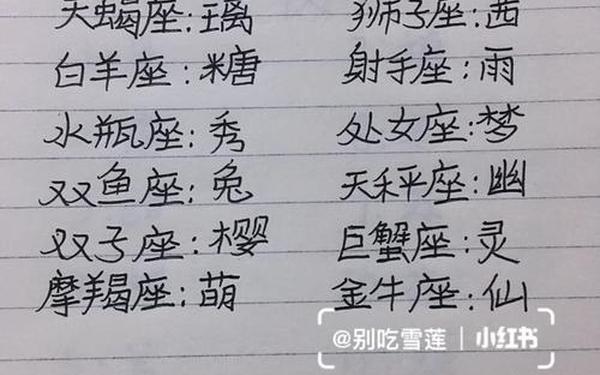 天蝎座:璃 狮子座:茜
白羊座:糖 射手座:雨
水瓶座:秀 处女座:梦
双鱼座:兔 天秤座:幽
双子座:樱 巨蟹座:灵
摩羯座:萌 金牛座:仙
@别吃雪莲 小红书